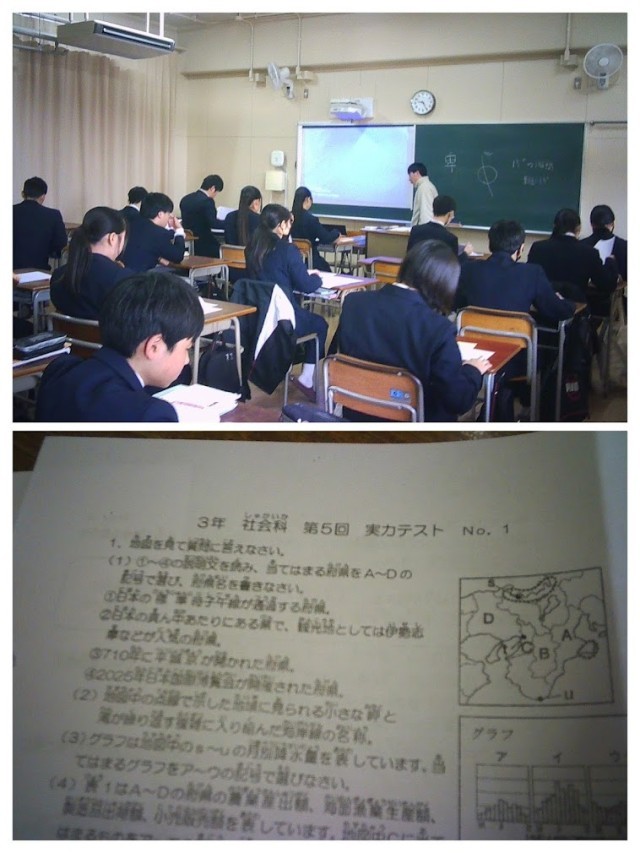 3年 社会科 第5回 実力テスト No. 1
しゃかいか
1. 地図を見て質問に答えなさい。
(1) ①~④の説明文を読み、当てはまる府県をA~Dの
記号で選び、府県名を書きなさい。
①日本の標準時子午線が通過する府県。
②日本の真ん中あたりにある県で、観光地としては伊勢志
摩などが人気の府県。
③710年に平城京が開かれた府県。
④2025年日本国際博覧会が開催された府県。
(2) 地図中の点線で示した地域に見られる小さな岬と
湾が繰り返す複雑に入り組んだ海岸線の名称。
(3) グラフは地図中のs~uの月別降水量を表しています。当
てはまるグラフをア~ウの記号で選びなさい。
(4) 表1はA~Dの府県の農業産出額、海面漁業生産額、
製造品出荷額、小売販売額を表しています。地図中Cに当て
はまるものを
s
D
A
t
C
B
u
グラフ
ア イ ウ